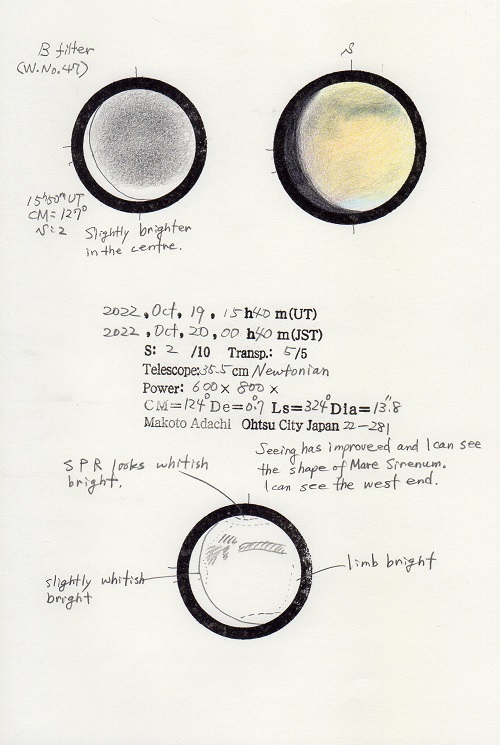 B filter
(W.No.47)
S
15h50m UT
CM=127°
S:2
Slightly brighter
in the centre.
2022, Oct, 19, 15h40m(UT)
2022, Oct, 20, 00h40m(JST)
S: 2 /10 Transp.: 5/5
Telescope:35.5cm/Newtonian
Power: 600× 800×
CM=124° De=0.°7 Ls=324° Dia=13."8
Makoto Adachi Ohtsu City Japan 22-281
Seeing has improveed and I can see
the shape of Mare Sirenum.
I can see the west end.
SPR looks whitish
bright.
limb bright
slightly whitish
bright